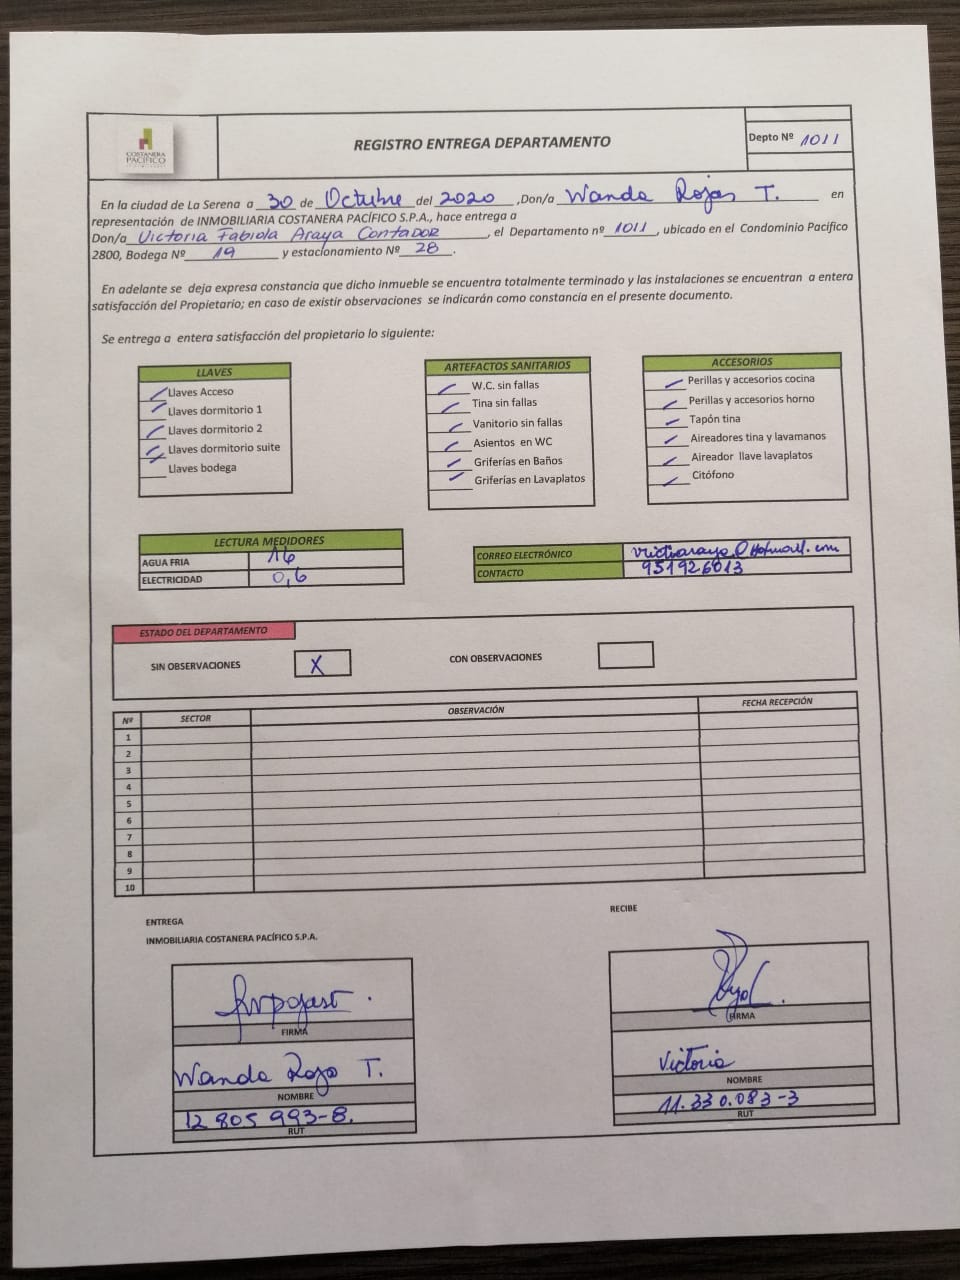 COSTANERA
PACÍFICO
REGISTRO ENTREGA DEPARTAMENTO
Depto Nº 1011
En la ciudad de La Serena a 30 de Octubre del 2020 ,Don/a Wanda Rojas T. en
representación de INMOBILIARIA COSTANERA PACÍFICO S.P.A., hace entrega a
Don/a Victoria Fabiola Araya Contador , el Departamento nº 1011 , ubicado en el Condominio Pacifico
2800, Bodega Nº 19 y estacionamiento Nº 28 .
En adelante se deja expresa constancia que dicho inmueble se encuentra totalmente terminado y las instalaciones se encuentran a entera
satisfacción del Propietario; en caso de existir observaciones se indicarán como constancia en el presente documento.
Se entrega a entera satisfacción del propietario lo siguiente:
LLAVES
Llaves Acceso
Llaves dormitorio 1
Llaves dormitorio 2
Llaves dormitorio suite
Llaves bodega
ARTEFACTOS SANITARIOS
W.C. sin fallas
Tina sin fallas
Vanitorio sin fallas
Asientos en WC
Griferías en Baños
Griferías en Lavaplatos
ACCESORIOS
Perillas y accesorios cocina
Perillas y accesorios horno
Tapón tina
Aireadores tina y lavamanos
Aireador llave lavaplatos
Citófono
LECTURA MEDIDORES
AGUA FRIA 16
ELECTRICIDAD 0,6
CORREO ELECTRÓNICO
CONTACTO 951926013
ESTADO DEL DEPARTAMENTO
SIN OBSERVACIONES X CON OBSERVACIONES
Nº SECTOR OBSERVACIÓN FECHA RECEPCIÓN
1
2
3
4
5
6
7
8
9
10
ENTREGA
INMOBILIARIA COSTANERA PACÍFICO S.P.A.
FIRMA
Wanda Rojas T.
NOMBRE
12 805 993-8.
RUT
RECIBE
FIRMA
Victoria
NOMBRE
11.330.083-3
RUT